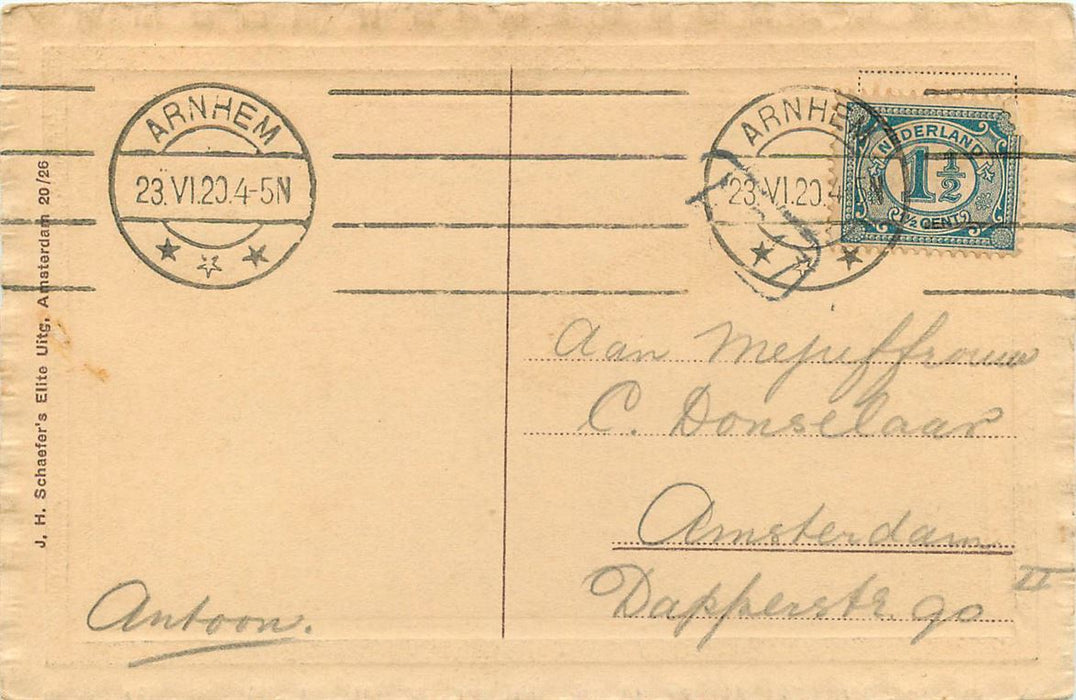 ARNHEM
23.VI.20.4-5N
ARNHEM
23.VI.20.4-5N
NEDERLAND
1 1/2
1/2 CENT
J. H. Schaefer's Elite Uitg. Amsterdam 20/26
Aan Mejuffrouw
C. Donselaar
Amsterdam
Dapperstr. 90 II
Antoon.